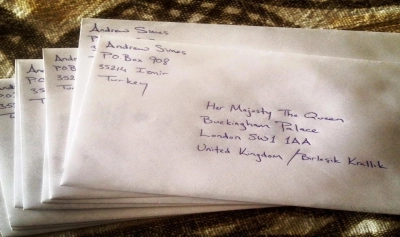 Andrew Simes
P
3
Andrew Simes
PO Box 908
35214 Izmir
Turkey
Her Majesty The Queen
Buckingham Palace
London SW1 1AA
United Kingdom / Birleşik Krallık
An
P.O Bo
352
Tur
A
P.C
35
Tu